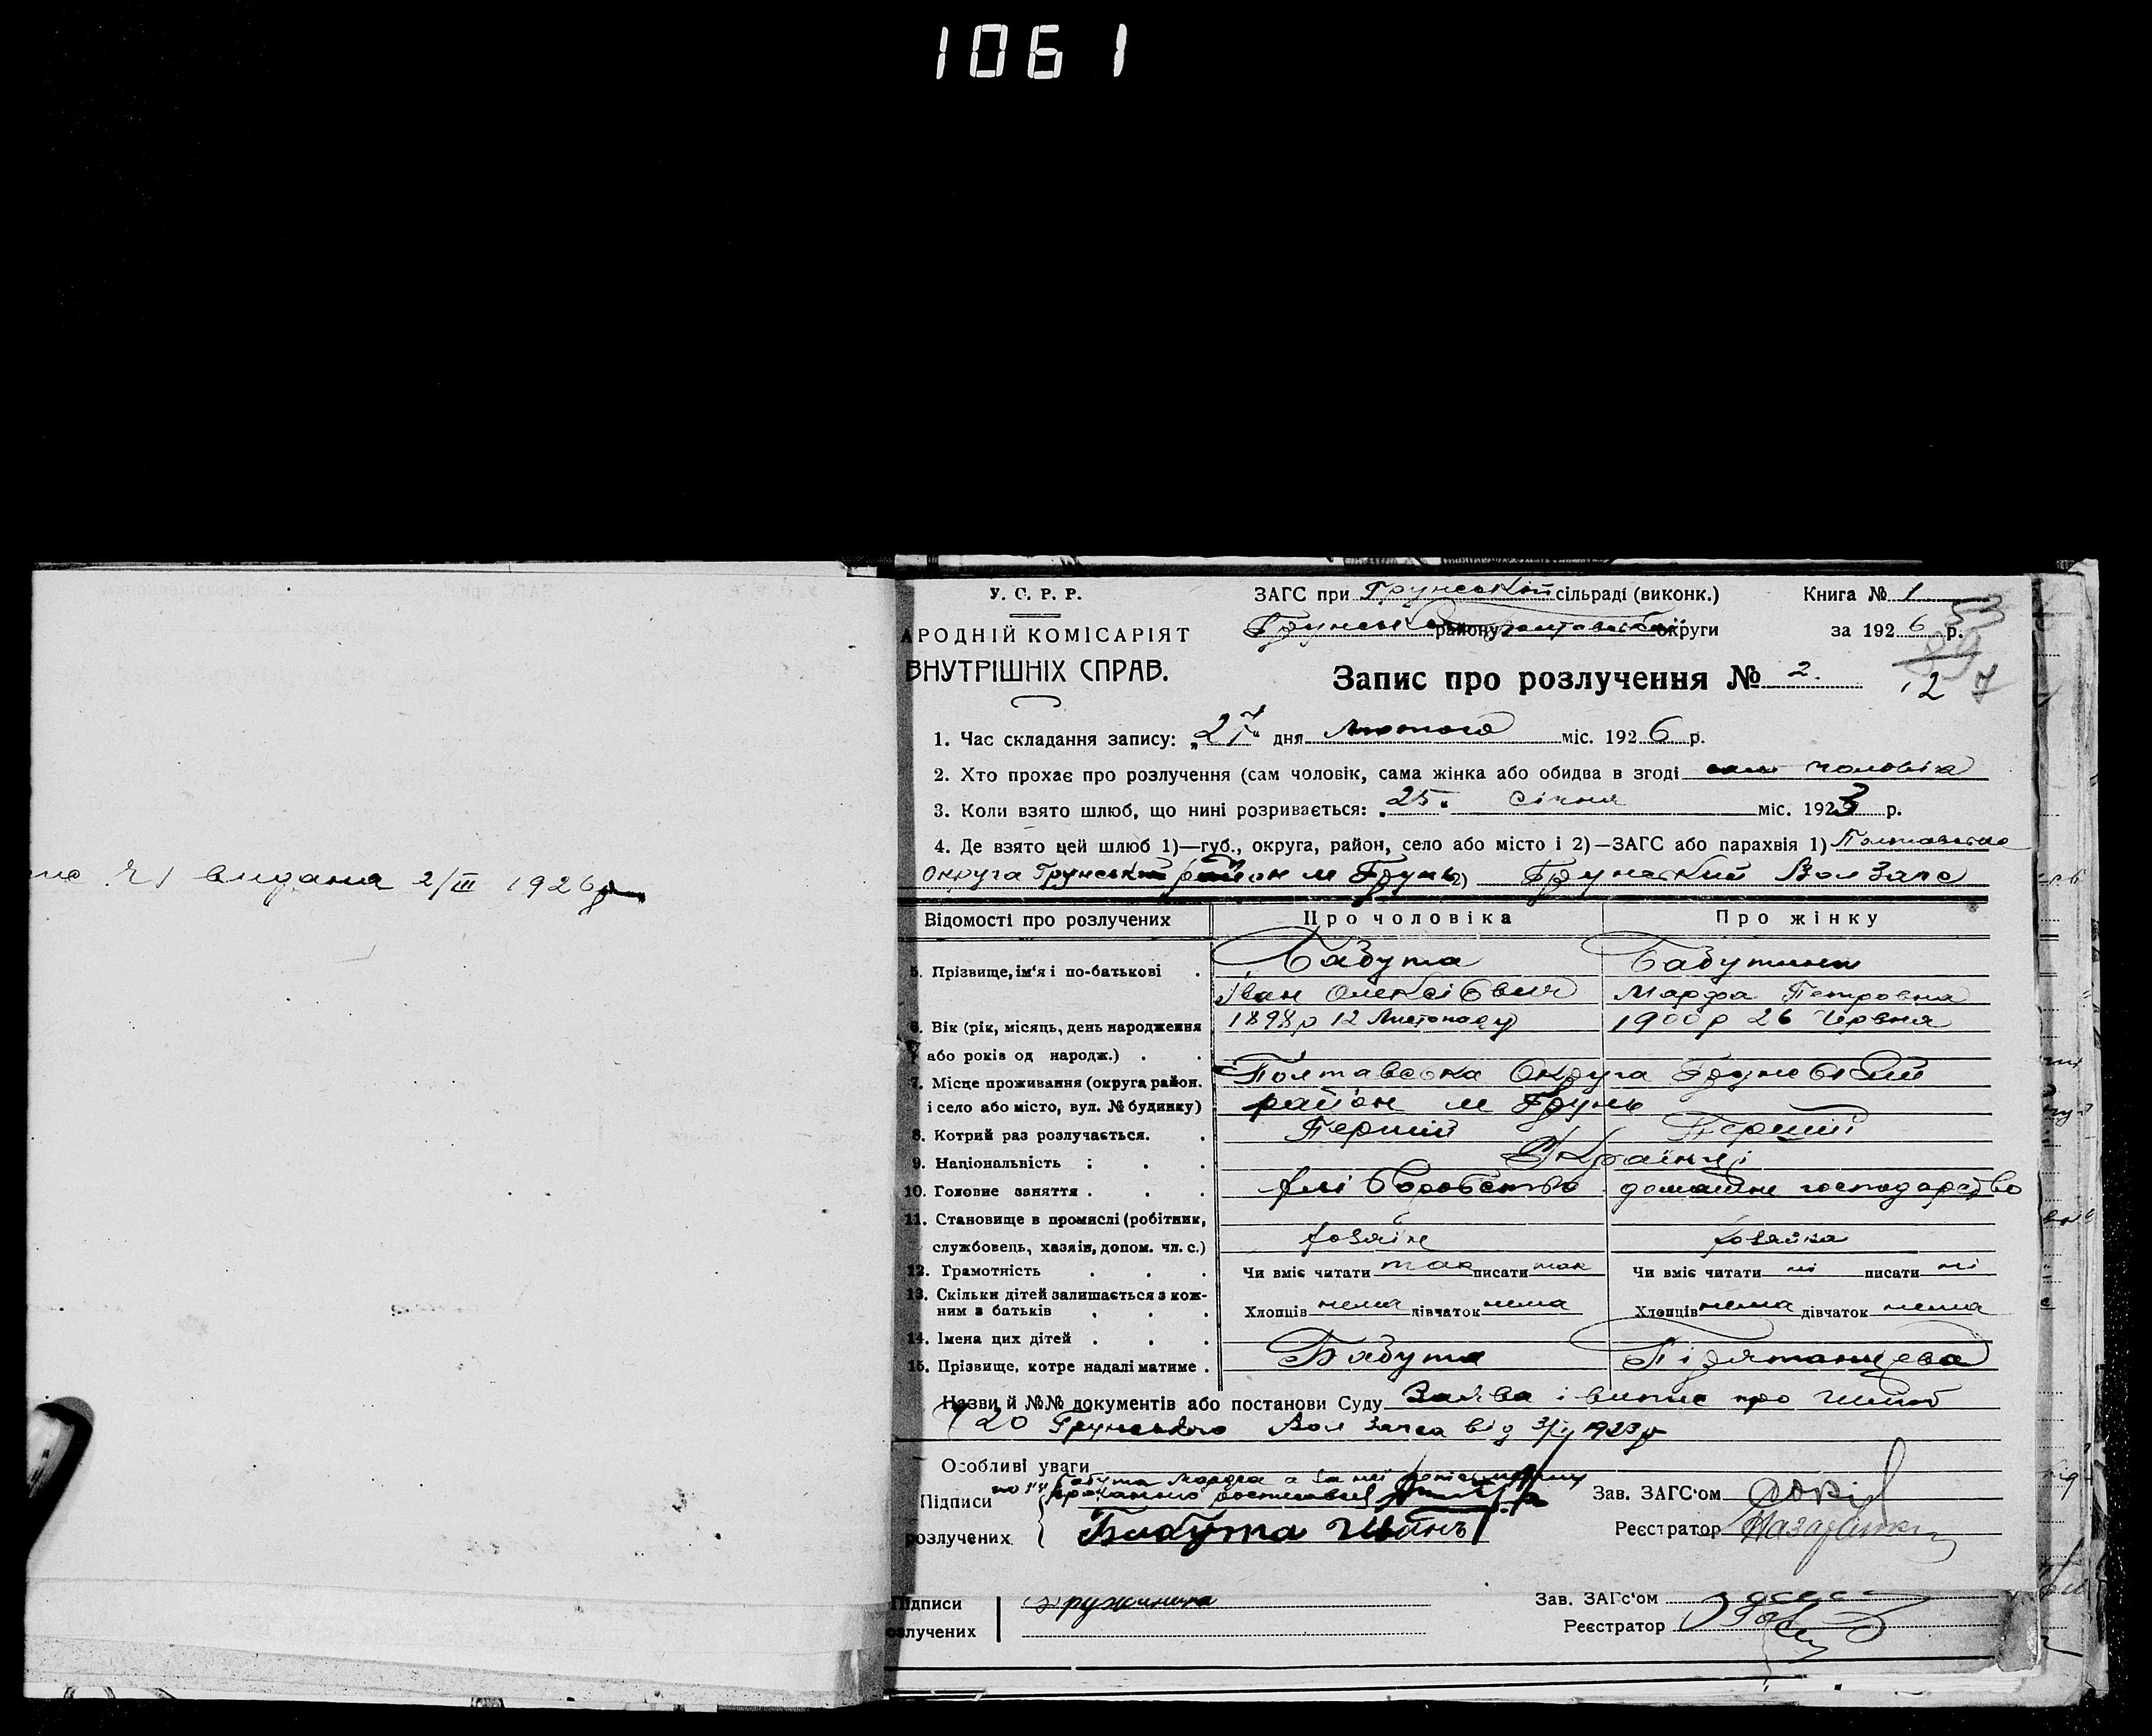 1061
У. С. Р. Р.
АРОДНІЙ КОМІСАРІЯТ
ВНУТРІШНІХ СПРАВ.
ЗАГС при Грунській сільраді (виконк.)
Грунськ району Полтавської округи
Книга № 1
за 1926 р.
53
12 7
Запис про розлучення № 2.
1. Час складання запису: „27“ дня Лютого міс. 1926 р.
2. Хто прохає про розлучення (сам чоловік, сама жінка або обидва в згоді чоловік
3. Коли взято шлюб, що нині розривається: „25“ січня міс. 1923 р.
4. Де взято цей шлюб 1)—губ., округа, район, село або місто і 2)—ЗАГС або парахвія 1) Полтавська
округа Грунський район м Грунь 2) Грунський Вол Загс
видана 2/III 1926 р
Відомості про розлучених
Про чоловіка
Про жінку
5. Прізвище, ім'я і по-батькові .
Бабута
Бабутина
Іван Олексієвич
Марфа Петровна
6. Вік (рік, місяць, день народження
1898 р 12 Листопаду
1900 р 26 Червня
або років од народж.) . .
7. Місце проживання (округа район.
Полтавська Округа Грунський
і село або місто, вул. № будинку)
район м Грунь
8. Котрий раз розлучається. .
Перший
Перший
9. Національність : . .
Українці
10. Головне заняття . . .
хліборобство
домашнє господарство
11. Становище в промислі (робітник,
службовець, хазяїн, допом. чл. с.)
хозяїн
хозяйка
12. Грамотність . . .
Чи вміє читати так писати так
Чи вміє читати ні писати ні
13. Скільки дітей залишається з кож-
ним з батьків . . .
Хлопців нема дівчаток нема
Хлопців нема дівчаток нема
14. Імена цих дітей . . .
15. Прізвище, котре надалі матиме .
Бабута
Назви й №№ документів або постанови Суду Заява і випис про шлюб
№ 20 Грунського Вол Загса від 1923 р
Особливі уваги
Бабута Марфа а за неї
Підписи
розлучених
Бабута Иванъ
Зав. ЗАГС'ом
Реєстратор
Підписи
озлучених
Зав. ЗАГС'ом
Реєстратор